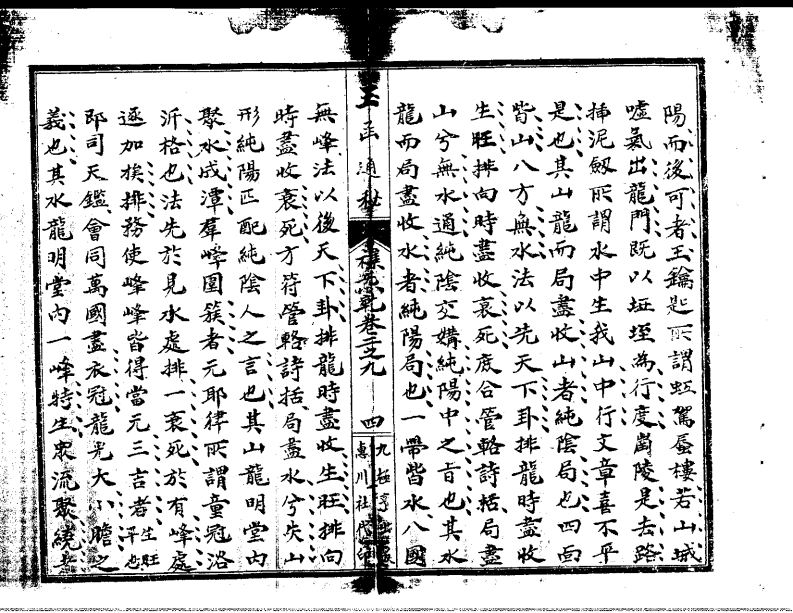 陽而後可者玉鑰匙所謂虹駕蜃樓若山城
噓氣出龍門既以垭垤為行度崗陵是去路
揷泥劔所謂水中生我山中行文章喜不平
是也其山龍而局盡收山者純陰局也四面
皆山八方無水法以先天下卦排龍時盡收
生旺排向時盡收衰死底合管輅詩括局盡
山兮無水通純陰交媾純陽中之旨也其水
龍而局盡收水者純陽局也一帶皆水八國
玉函通秘
卷之九
四
無峰法以後天下卦排龍時盡收生旺排向
時盡收衰死方符管輅詩括局盡水兮失山
形純陽匹配純陰人之言也其山龍明堂內
聚水成潭羣峰圍簇者元耶律所謂童冠浴
沂格也法先於見水處排一衰死於有峰處
逐加挨排務使峰峰皆得當元三吉者生旺平也
即司天鑑會同萬國盡衣冠龍光大小瞻之
義也其水龍明堂內一峰特生眾流聚繞者